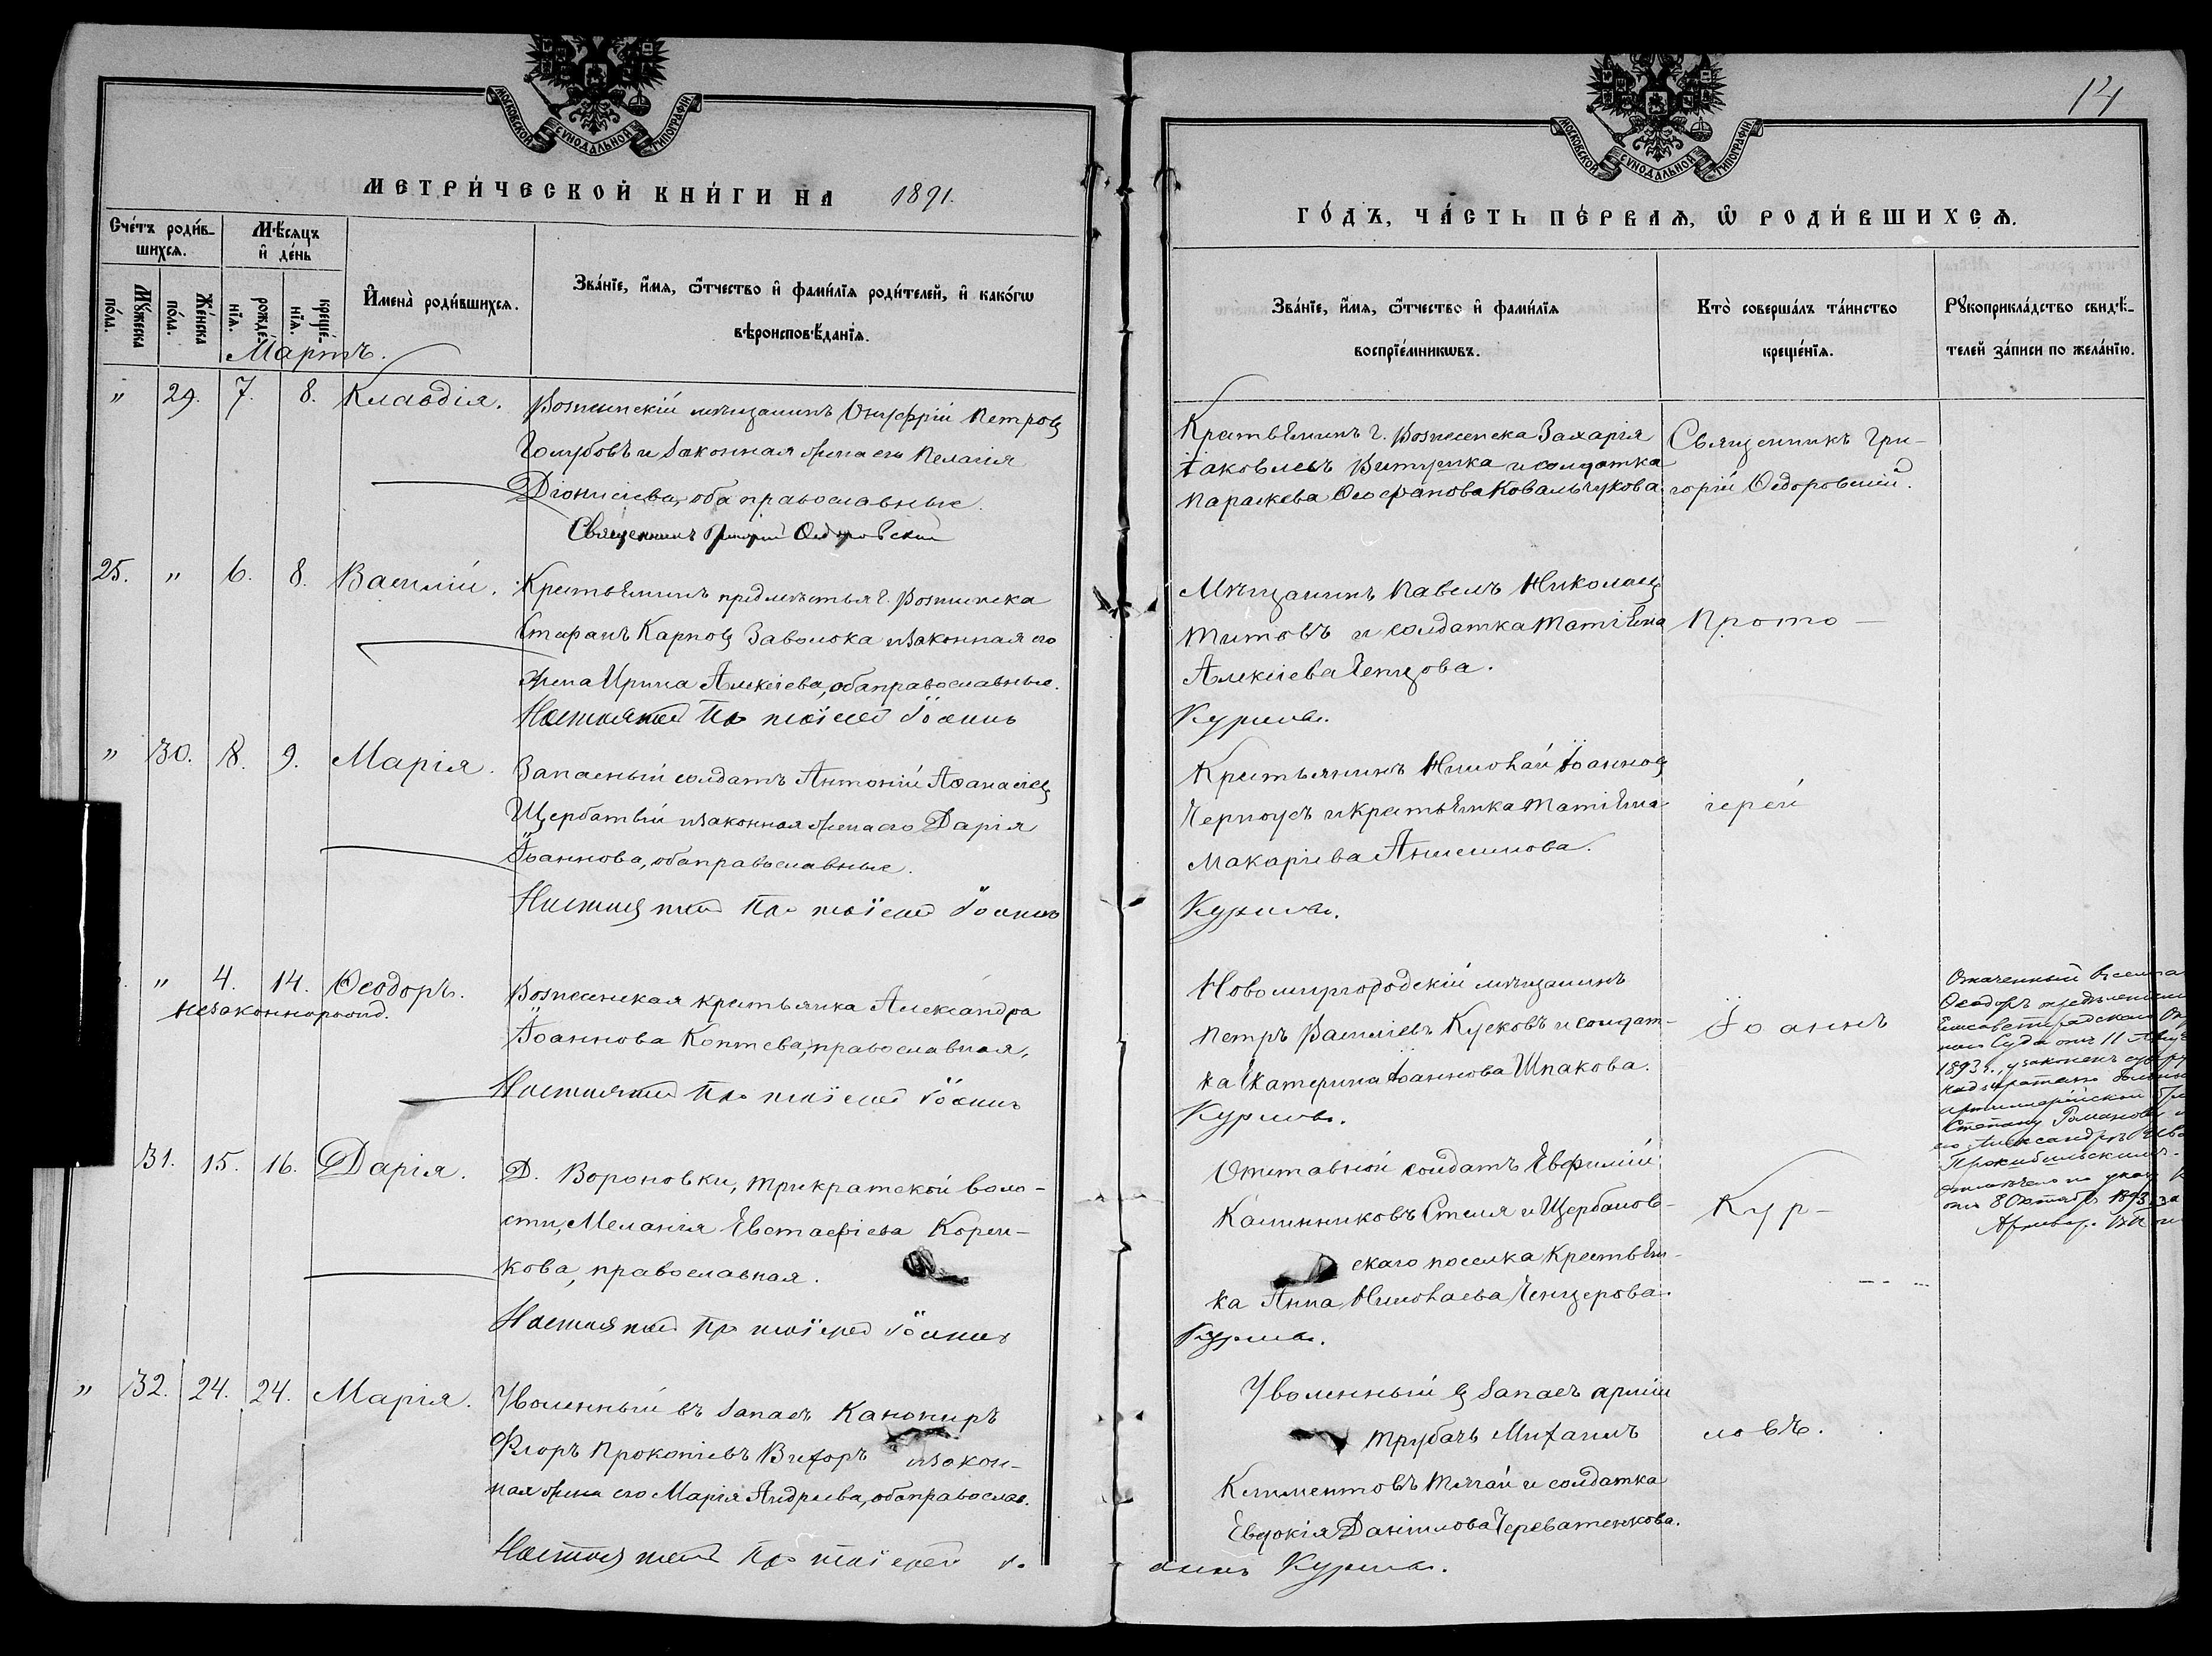 МОСКОВСКОЙ СѴНОДАЛЬНОЙ ТИПОГРАФІИ
МЕТРИ́ЧЕСКОЙ КНИ́ГИ НА 1891.
Сче́тъ роди́в-
шихсѧ.
Мꙋ́жеска по́ла.
Же́нска по́ла.
Мѣ́сѧцъ
и҆ де́нь
рожде́нїѧ.
креще́нїѧ.
И҆мена̀ роди́вшихсѧ.
Зва́нїе, и҆́мѧ, ѻ҆́тчество и҆ фами́лїѧ роди́телей, и҆ како́гѡ
вѣроисповѣ́данїѧ.
Мартъ.
" 29. 7. 8. Клавдія.
Вознесенскій мѣщанинъ Онуфрій Петровъ
Голубовъ и законная жена его Пелагія
Діонисіева, оба православные.
Священникъ Григорій Ѳедоровскій
25. " 6. 8. Василій.
Крестьянинъ предмѣстья г. Вознесенска
Стефанъ Карповъ Заволока и законная его
жена Ирина Алексіева, оба православные.
Настоятель Протоіерей Іоаннъ
" 30. 8. 9. Марія.
Запасный солдатъ Антоній Аѳанасіевъ
Щербатый и законная жена его Дарія
Іоаннова, оба православные.
Настоятель Протоіерей Іоаннъ
" 4. 14. Ѳеодоръ.
незаконнорожд.
Вознесенская крестьянка Александра
Іоаннова Коптева, православная,
Настоятель Протоіерей Іоаннъ
31. 15. 16. Дарія.
Д. Вороновки, Трикратской воло-
сти, Меланія Евстафіева Корен-
кова, православная.
Настоятель Протоіерей Іоаннъ
" 32. 24. 24. Марія.
Уволенный въ запасъ Канониръ
Флоръ Прокопіевъ Вихоръ и закон-
ная жена его Марія Андреева, оба православ.
Настоятель Протоіерей Іо
14
МОСКОВСКОЙ СѴНОДАЛЬНОЙ ТИПОГРАФІИ
ГО́ДЪ, ЧА́СТЬ ПЕ́РВАѦ, Ѡ҆ РОДИ́ВШИХСѦ.
Зва́нїе, и҆́мѧ, ѻ҆́тчество и҆ фами́лїѧ
воспрїе́мникѡвъ.
Кто̀ соверша́лъ та́инство
креще́нїѧ.
Рꙋкоприкла́дство свидѣ́-
телей за́писи по жела́нїю.
Крестьянинъ г. Вознесенска Захарія
Іаковлевъ Витушка и солдатка
Параскева Ѳеофанова Ковальчукова.
Священникъ Гри-
горій Ѳедоровскій.
Мѣщанинъ Павелъ Николаевъ
Титовъ и солдатка Татіяна
Алексіева Ченцова.
Курловъ.
Прото-
Крестьянинъ Николай Іоанновъ
Черноусъ и крестьянка Татіяна
Макаріева Анисимова.
Курловъ.
іерей
Новомиргородскій мѣщанинъ
Петръ Василіевъ Кусковъ и солдат-
ка Екатерина Іоаннова Шпакова.
Курловъ.
Іоаннъ
Означенный
Ѳеодоръ опредѣленіемъ
Елисаветградскаго
Суда отъ 11
1893 г., узаконенъ
Степану Романову
его Александрѣ
отъ 8 Октября 1893 за
Отставной солдатъ Евфимій
Калинниковъ Стеля и Щербанов-
скаго поселка Крестьян-
ка Анна Николаева Ченцерова.
Курловъ.
Кур-
Уволенный въ запасъ арміи
трубачъ Михаилъ
Климентовъ Тягай и солдатка
Евдокія Даніилова Череватенкова.
аннъ Курловъ.
ловъ.